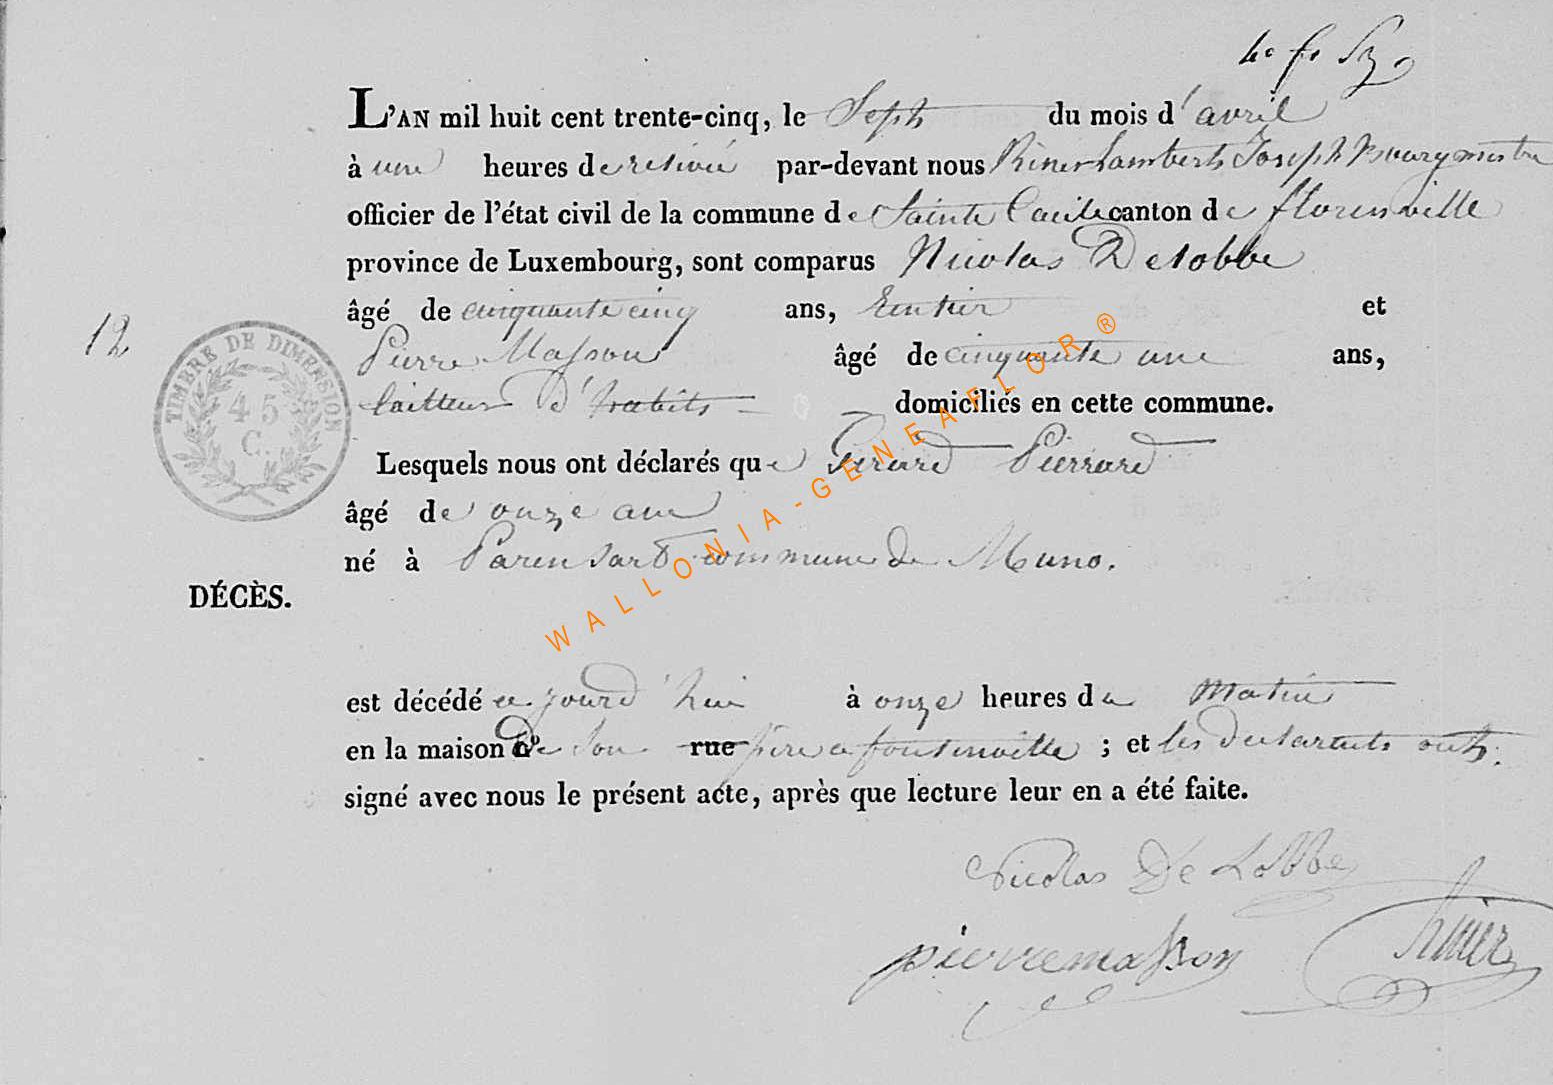 4e fe
L'AN mil huit cent trente-cinq, le Sept du mois d'avril
à une heures de relevée par-devant nous Riner Lambert Joseph Bourgmestre
officier de l'état civil de la commune de Sainte Cecile canton de florenville
province de Luxembourg, sont comparus Nicolas Delobbe
âgé de cinquante cinq ans, Rentier et
12
Pierre Masson âgé de cinquante une ans,
tailleur d'habits domiciliés en cette commune.
TIMBRE DE DIMENSION
45
C.
Lesquels nous ont déclarés que Gerard Pierrard
âgé de onze ans
né à Parensart commune de Muno.
DÉCÈS.
est décédé ce jourd'hui à onze heures du Matin
en la maison de Son rue pere a fontenoille ; et les declarants ont
signé avec nous le présent acte, après que lecture leur en a été faite.
Nicolas De Lobbe
pierre masson
WALLONIA-GENEAFLOR®